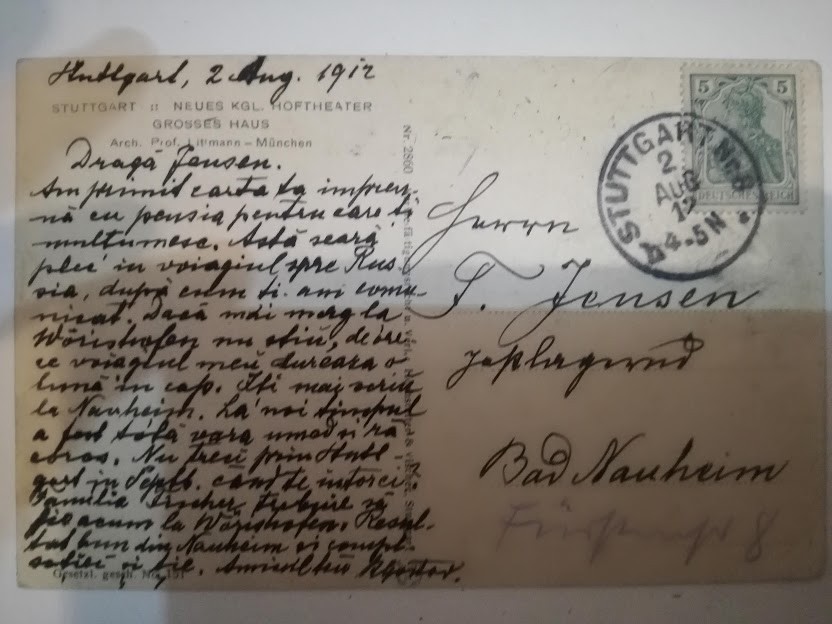 Stuttgart, 2 Aug. 1912
STUTTGART :: NEUES KGL. HOFTHEATER
GROSSES HAUS
Arch. Prof. Littmann – München
Dragă Jensen.
Am primit carta ta împreu-
nă cu pensia pentru care îți
mulțumesc. Astă seară
plec în voiagiul spre Rus-
sia, după cum ți-am comu-
nicat. Dacă mai merg la
Wörishofen nu știu, deóre-
ce voiagiul meu durează o
lună în cap. Îți mai scriu
la Nauheim. La noi timpul
a fost tótă vara umed și ră-
coros. Nu treci prin Stutt-
gart in Septb. când te întorci
Familia Fischer trebuie să
fie acum la Wörishofen. Resul-
tat bun din Nauheim și
și ție. Amicul tău
Gesetzl. gesch. No. 151
Nr. 2860
Herrn
T. Jensen
postlagernd
Bad Nauheim
8
5 5
DEUTSCHES REICH
STUTTGART
2
AUG
12
4-5N